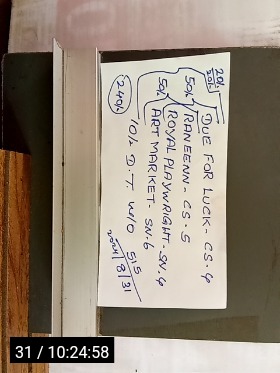 20/- 20/-
DUE FOR LUCK - CS. 4
50/- RANEENN - CS. 5
ROYAL PLAYWRIGHT - SN. 4
50/- ART MARKET - SN. 6
240/-
10/- D.T. W/O 515
2024/8/31
31 / 10:24:58